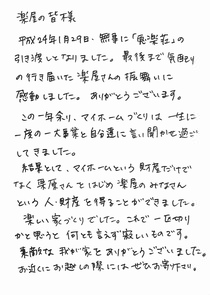 楽居の皆様
平成24年1月29日、無事に「爽楽荘」の
引き渡しとなりました。最後まで気配り
の行き届いた楽居さんの振舞いに
感動しました。ありがとうございます。
この一年余り、マイホームづくりは一生に
一度の一大事業と自分達に言い聞かせ過ご
してきました。
結果として、マイホームという財産だけで
なく栗原さんをはじめ楽居のみなさん
という人・財産を得ることができました。
楽しい家づくりでした。これで一区切り
かと思うと何とも言えず寂しいものです。
素敵な我が家をありがとうございました。
お近くにお越しの際にはぜひお寄り下さい。